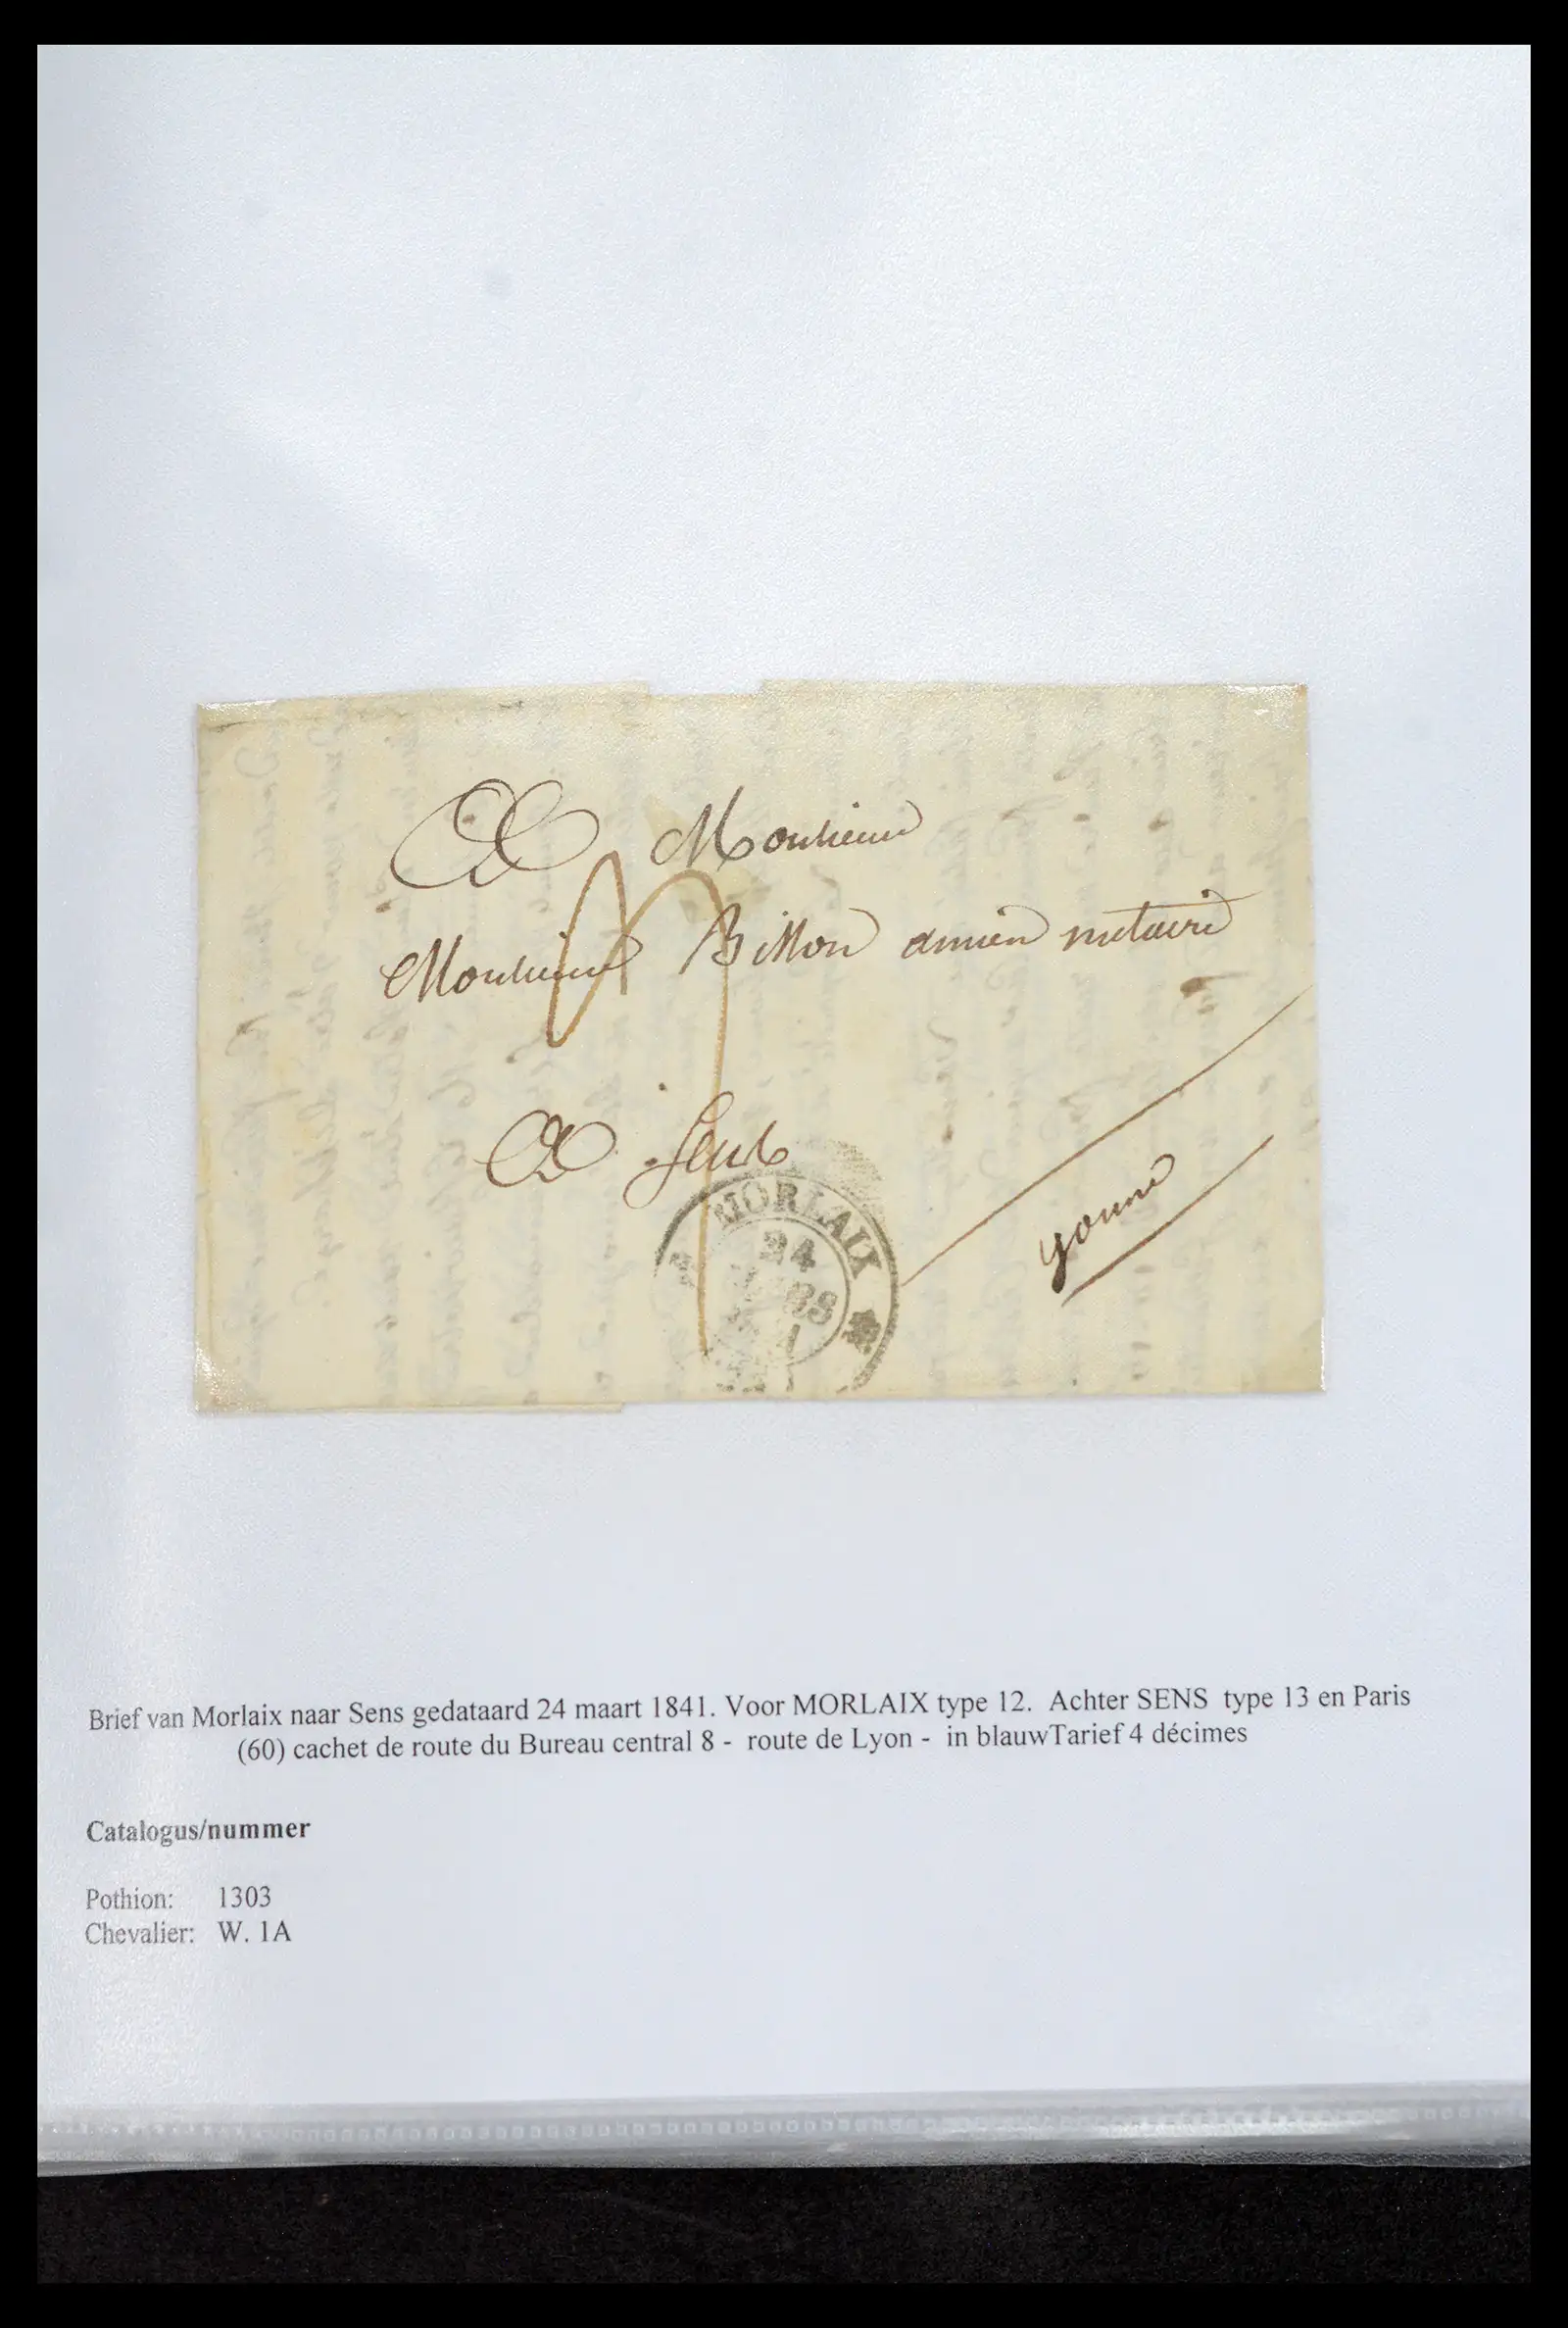 A Monsieur
Monsieur Billon ancien notaire
A Sens
yonne
MORLAIX
24
MARS
Brief van Morlaix naar Sens gedataard 24 maart 1841. Voor MORLAIX type 12. Achter SENS type 13 en Paris
(60) cachet de route du Bureau central 8 - route de Lyon - in blauwTarief 4 décimes
Catalogus/nummer
Pothion: 1303
Chevalier: W. 1A